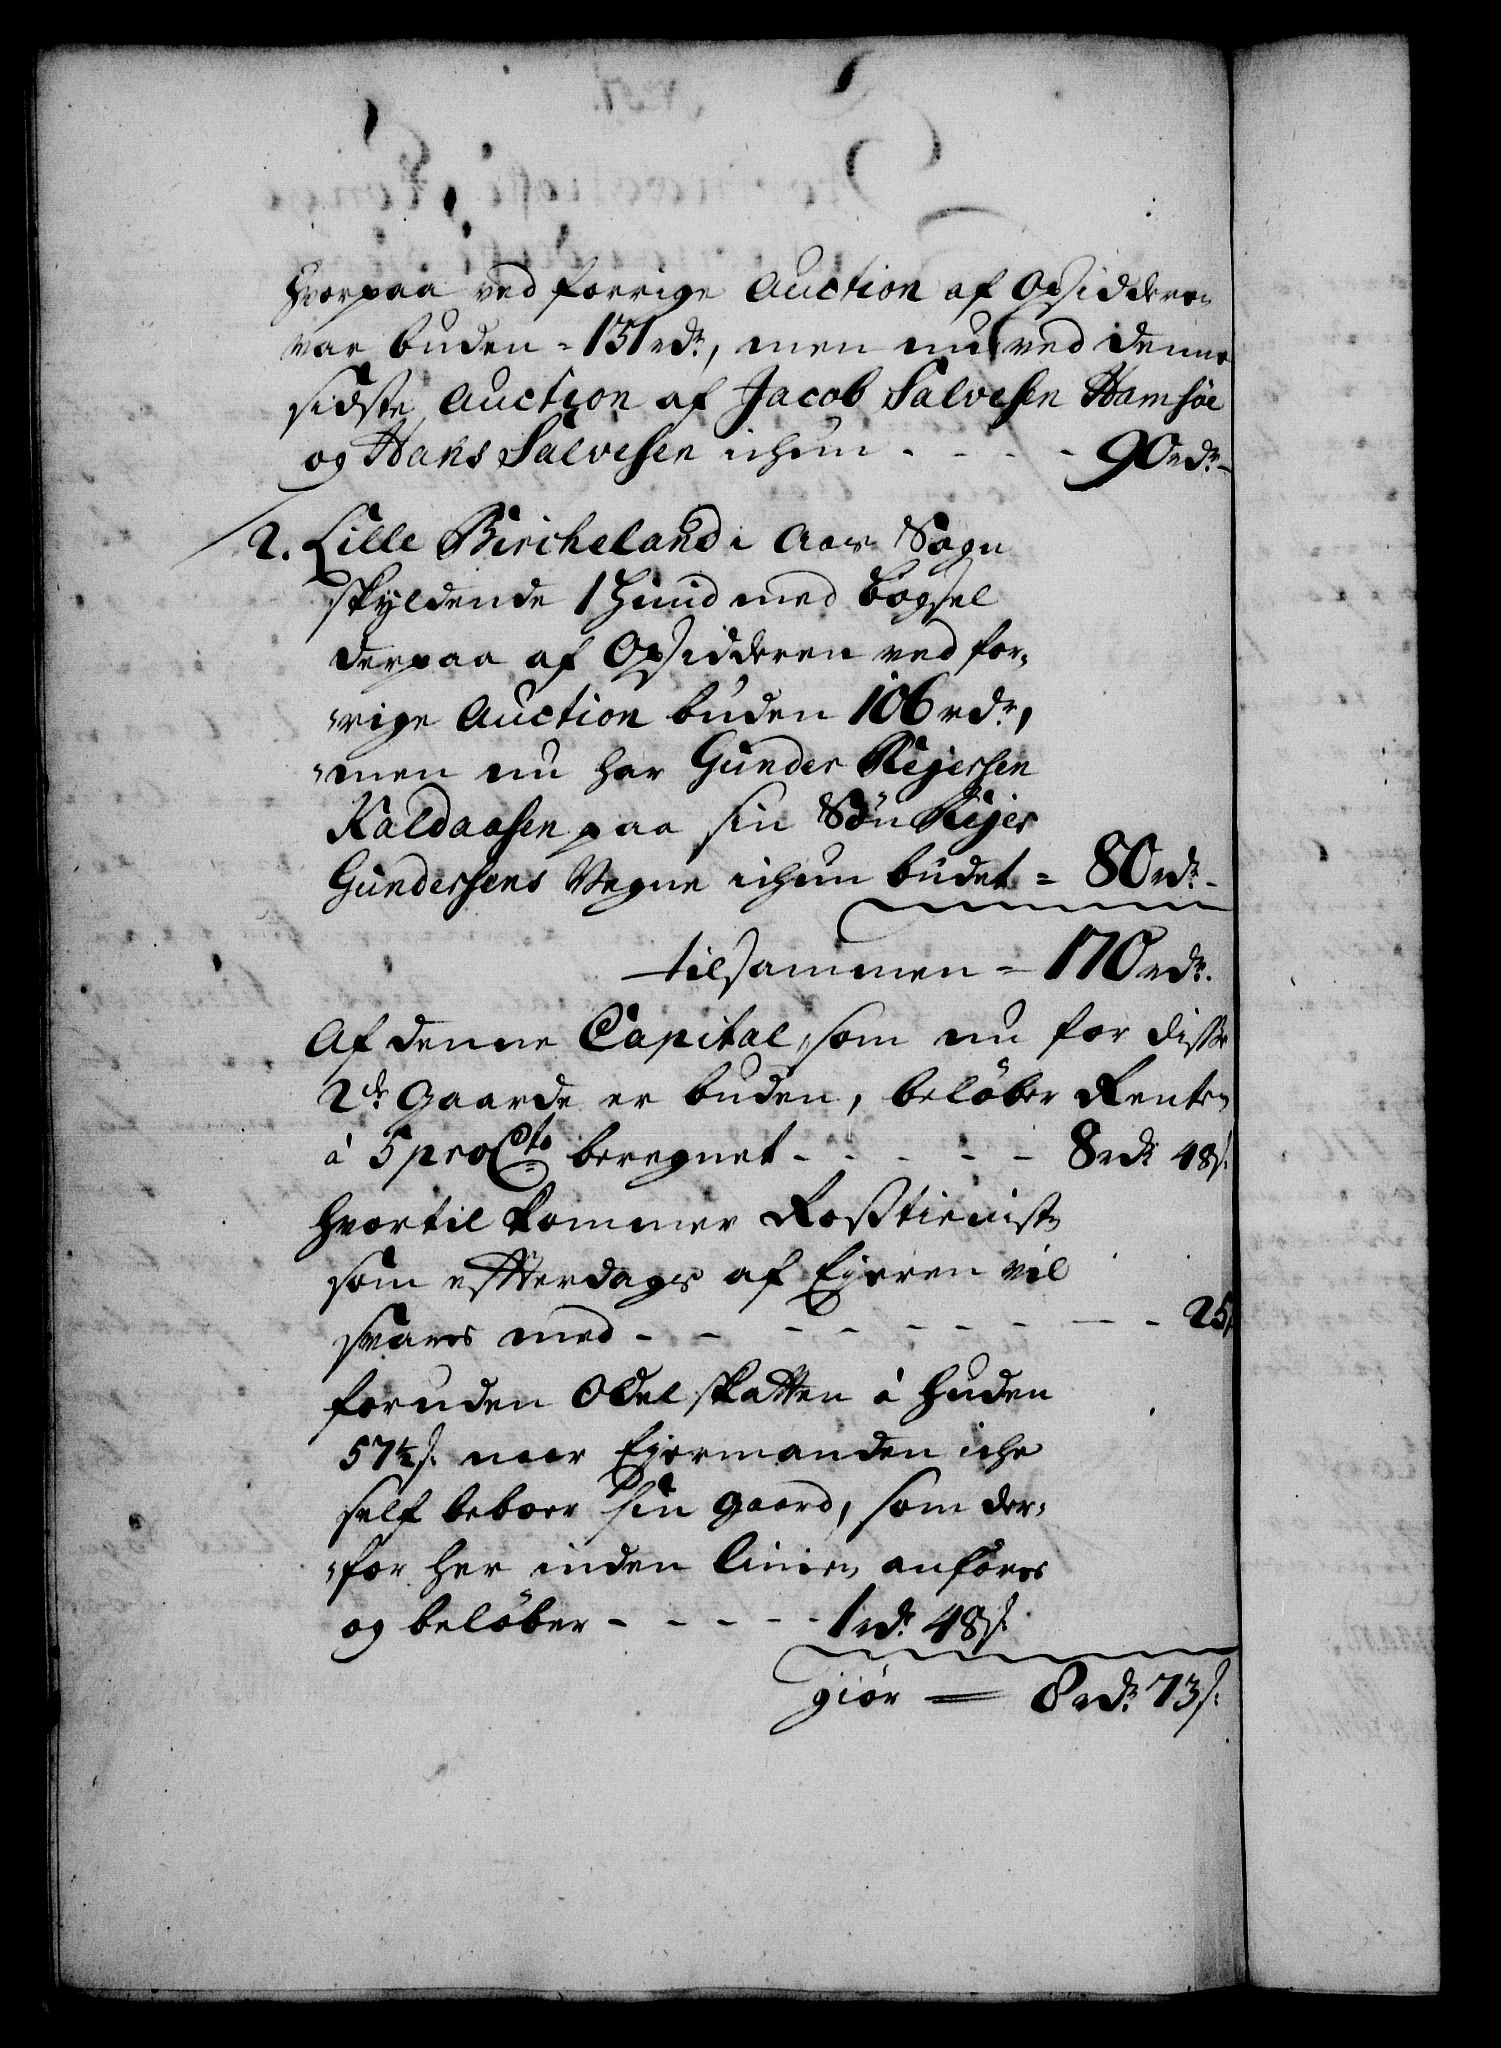 hvorpaa ved forrige Auction af Opsidderen
var buden = 131 rdr, men nu ved denne
sidste Auction af Jacob Salvesen Hamsöe
og Hans Salvesen ichun - - - - 90 rdr -
2. Lille Bircheland i Aas Sogn
skyldende 1 Huud med bögsel
derpaa af Opsidderen ved for-
rige Auction buden 106 rdr,
men nu har Gunder Rejersen
Kaldaasen paa sin Sön Rejer
Gundersens Vegne ichun budet = 80 rdr -
tilsammen = 170 rdr.
Af denne Capital, som nu for disse
2de Gaarde er buden, belöber Renten
à 5 pro Cto beregnet - - - - - 8 rdr 48 s.
hvortil kommer Rosstieniste
som efterdags af Ejeren vil
svares med - - - - - - - - - 25 s
foruden Odelskatten à huden
57½ s. naar Ejermanden iche
self beboer sin gaard, som der-
for her inden linien anföres
og belöber - - - - - 1 rdr 48 s.
giör = 8 rdr 73 s.